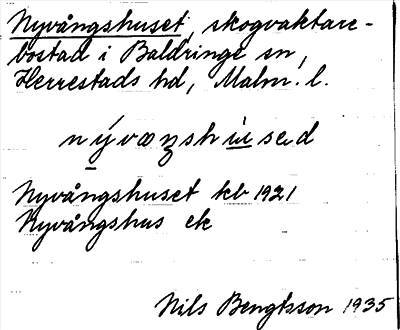 Nyvångshuset, skogvaktare-
bostad i Baldringe sn,
Herrestads hd, Malm. l.
nývæŋshùsed
Nyvångshuset kb 1921
Nyvångshus ek
Nils Bengtsson 1935